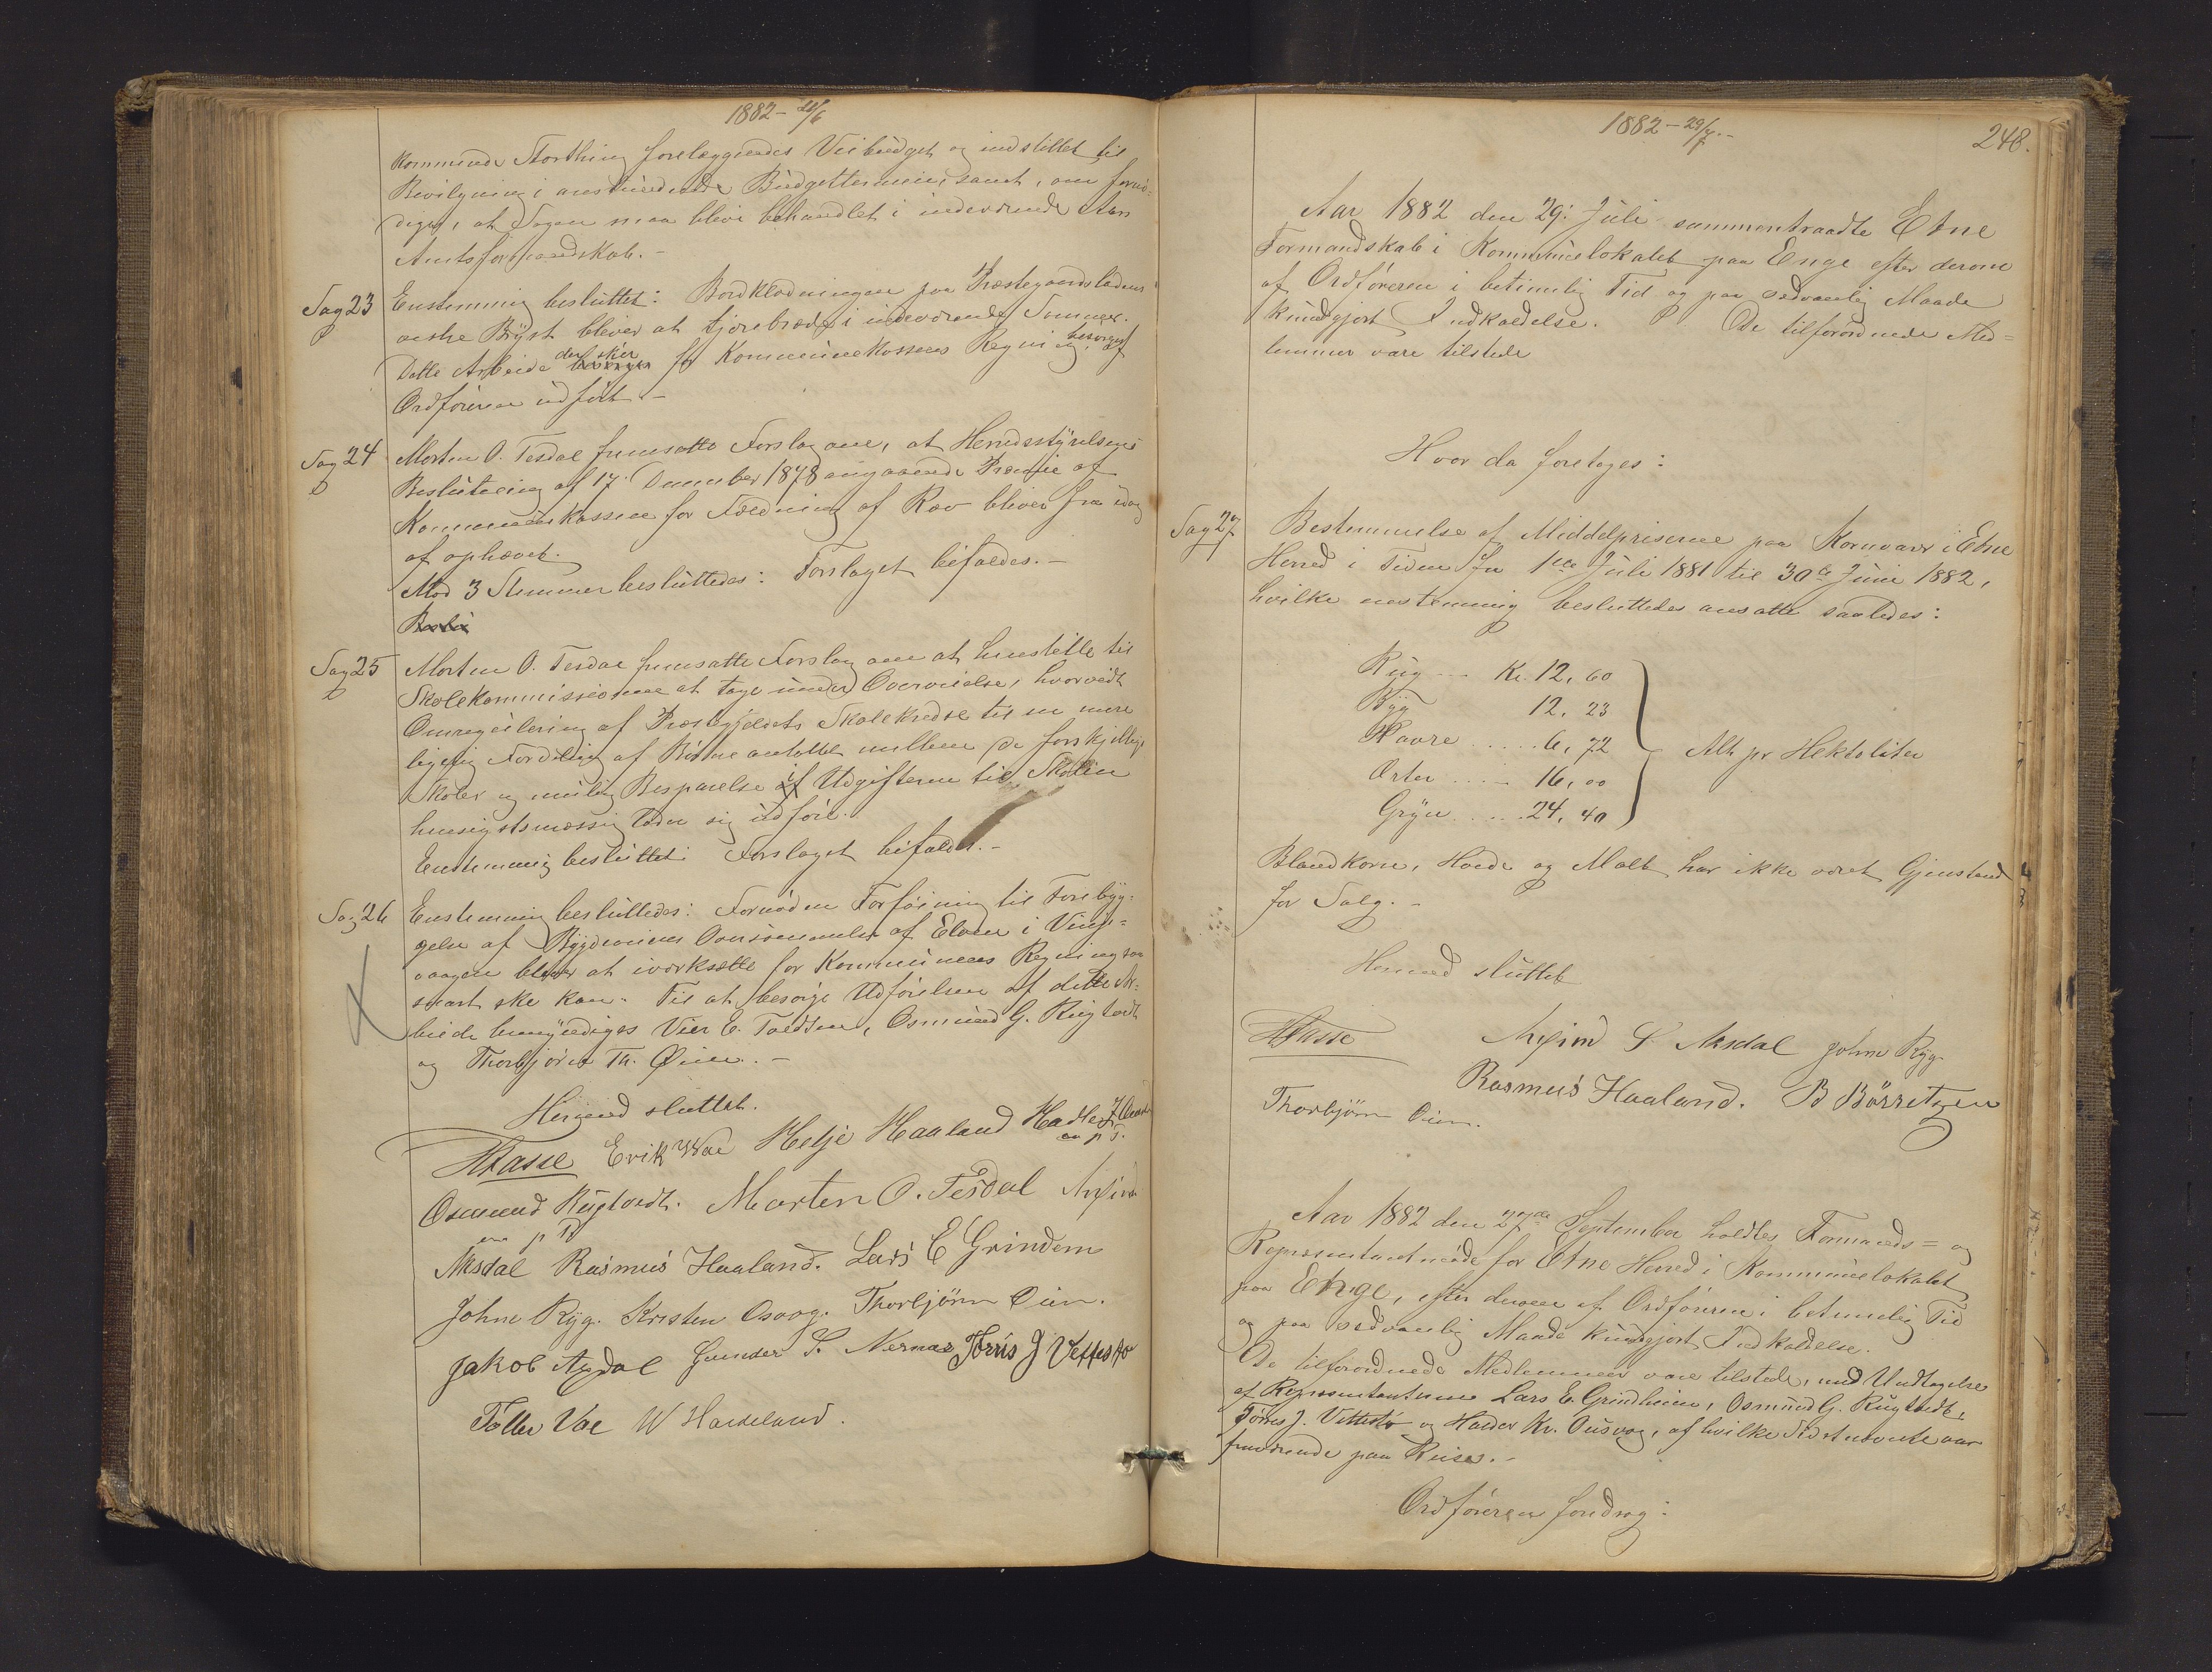 1882 - 29/6
kommende Storthing forelæggendes Veibudget og indstillet til
Bevilgning i anstundende Budgettermin, samt, om fornø-
diges, at Sagen maa blive behandlet i indeværende Aars
Amtsformandskab. -
Sag 23 Enstemmig besluttet: Bordklædningen paa Præstegaardsladens
østre Bryst bliver at tjærebræde i indeværende Sommer.
Dette Arbeide der sker for Kommunekassens Regning, besørges af
Ordføreren udført -
Sag 24 Morten O. Tesdal fremsatte Forslag om, at Herredsstyrelsens
Beslutning af 17 December 1878 angaaende Præmie af
Kommunekassen for Fældning af Ræv bliver fra idag
af ophævet.
Mod 3 Stemmer besluttedes: Forslaget bifaldes. -
Beslu
Sag 25 Morten O. Tesdal fremsatte Forslag om at henstille til
Skolekommissionen at tage under Overveielse, hvorvidt
Omregulering af Præstegjeldets Skolekredse til en mere
ligelig Fordeling af Børneantallet mellem de forskjellige
Skoler og mulig Besparelse i Udgifterne til Skolen
hensigtsmæssig lader sig udføre.
Enstemmig besluttet: Forslaget bifaldes. -
Sag 26 Enstemmig besluttedes: Fornøden Forføining til Forebyg-
gelse af Bygdeveiens Oversvømmelse af Elven i Vinje-
vaagen bliver at iværksætte for Kommunens Regning saa
snart ske kan. Til at besørge Udførelsen af dette Ar-
beide bemyndiges Vier E. Tveitun, Osmund G. Rygtvedt
og Thorbjørn Th. Øien. -
Hermed sluttet.
HFasse Erik Vae Helje Haaland Hadle
m p P.
Osmund Rugtvedt. Morten O. Tesdal Arfind
m p P
Aksdal Rasmus Haaland. Lars E Grindem
Johne Ryg. Kristen Osvog. Thorbjörn Øien.
Jakob Agdal Gunder S. Nernæs Törris J Vettestø
Tøllev Vae W Haukeland.
1882 - 29/7 -
248.
Aar 1882 den 29: Juli sammentraadte Etne
Formandskab i Kommunelokalet paa Enge efter derom
af Ordføreren i betimelig Tid og paa sedvanlig Maade
kundgjort Indkaldelse. De tilforordnede Med-
lemmer vare tilstede
Hvor da foretoges:
Sag 27 Bestemmelse af Middelpriserne paa Kornvarer i Etne
Herred i Tiden fra 1ste Juli 1881 til 30te Juni 1882,
hvilke enstemmig besluttedes ansatte saaledes:
Rug --- Kr. 12, 60
Byg 12, 23
Havre ..... 6, 72 Alt pr Hektoliter
Erter ..... 16, 00
Gryn ..... 24, 40
Blandkorn, Hvede og Malt har ikke været Gjenstand
for Salg. -
Hermed sluttet
HFasse Arfind S Aksdal Johne Ryg.
Rasmus Haaland. B Börretzen
Thorbjörn Øien.
Aar 1882 den 27de September holdtes Formands- og
Repræsentantmøde for Etne Herred i Kommunelokalet
paa Enge, efter derom af Ordføreren i betimelig Tid
og paa sedvanlig Maade kundgjort Indkaldelse.
De tilforordnede Medlemmer vare tilstede, med Undtagelse
af Repræsentanterne Lars E. Grindheim, Osmund G. Rugtvedt,
Tørres J. Vettestø og Halder Kr. Ousvog, af hvilke Sidstnævnte var
fraværende paa Reiser. -
Ordføreren foredrog: